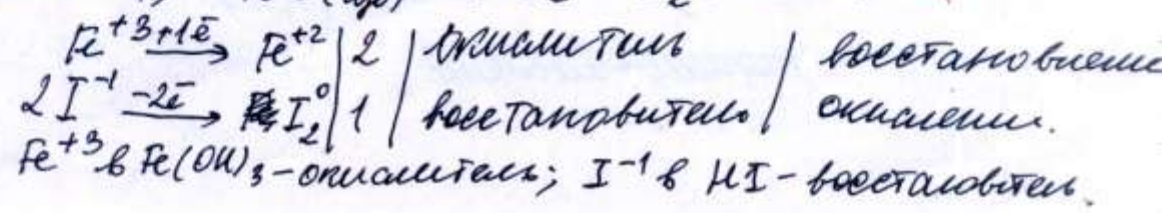 Fe⁺³ +1ē → Fe⁺² | 2 | окислитель / восстановление
2I⁻¹ -2ē → I₂⁰ | 1 | восстановитель / окисление.
Fe⁺³ в Fe(OH)₃ - окислитель; I⁻¹ в HI - восстановитель.